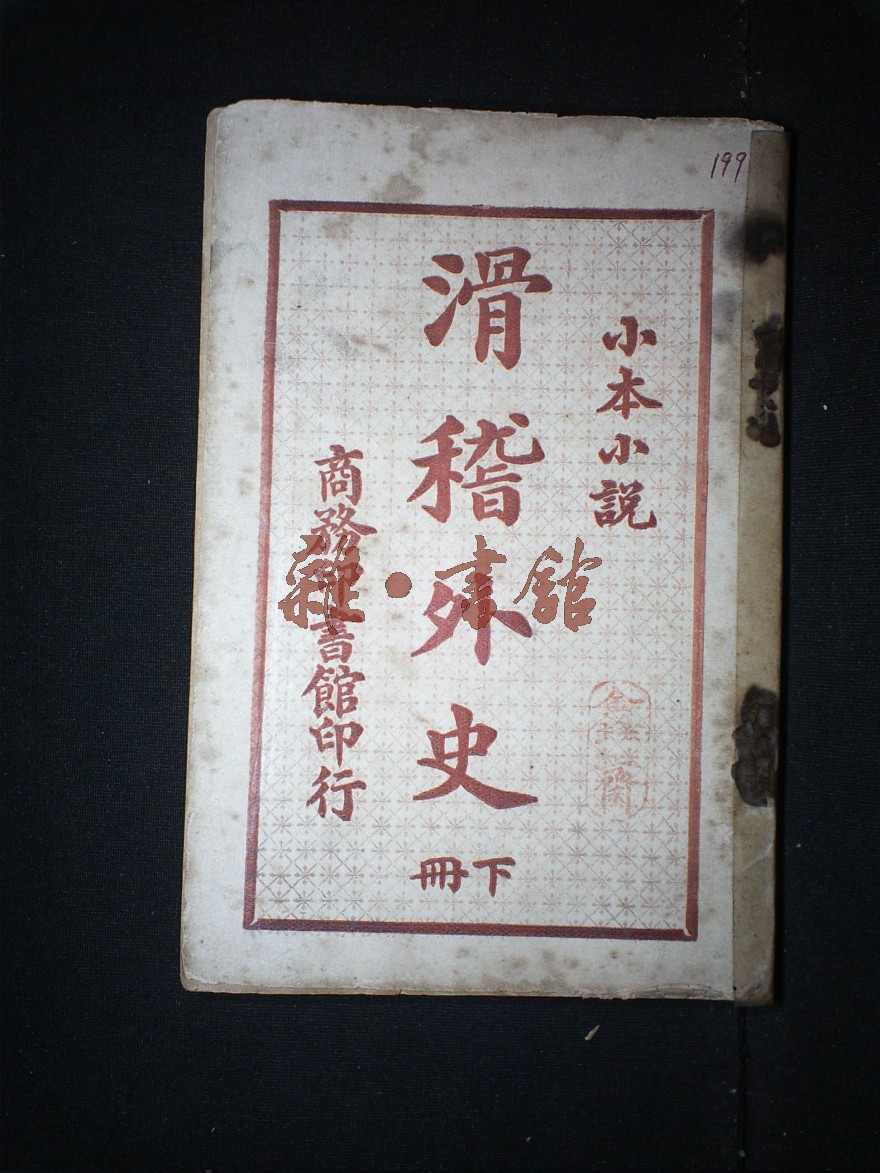 199
小本小説
滑稽外史
下冊
商務印書館印行
雜·書館